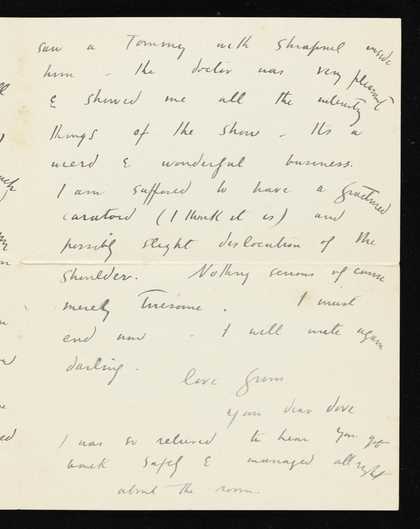 saw a Tommy with shrapnel inside
him - the doctor was very pleasant
& showed me all the
things of the show - Its a
weird & wonderful business.
I am supposed to have a fractured
(I think it is) and
possibly slight dislocation of the
shoulder. Nothing serious of course
merely tiresome. I must
end now - I will write again
darling.
love from
your dear dove
I was so relieved to hear you got
back safely & managed allright
about the room.